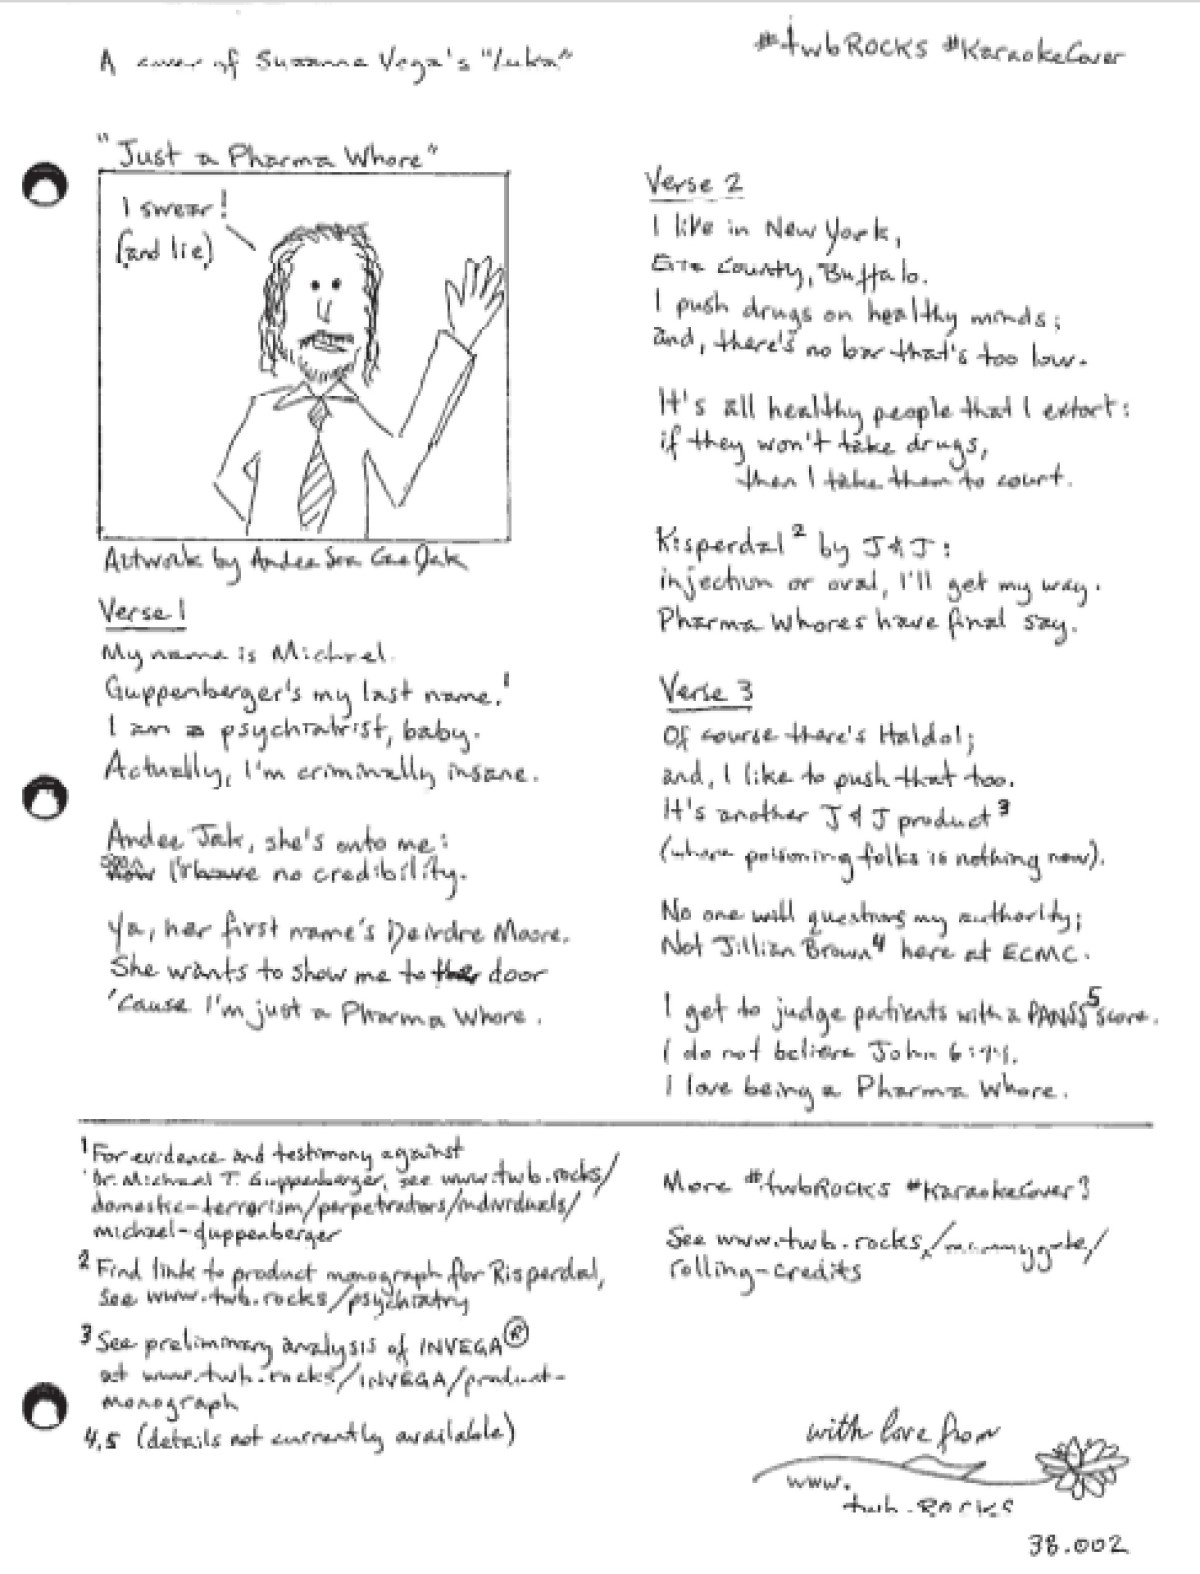 A cover of Suzanne Vega's "Luka"
#twbRocks #KaraokeCover
"Just a Pharma Whore"
I swear!
(and lie)
Artwork by Andee
Verse 1
My name is Michael.
Guppenberger's my last name.¹
I am a psychiatrist, baby.
Actually, I'm criminally insane.
Andee Jak, she's onto me:
soon I'll have no credibility.
Ya, her first name's Deirdre Moore.
She wants to show me to the door
'cause I'm just a Pharma Whore.
Verse 2
I live in New York,
Erie County, Buffalo.
I push drugs on healthy minds;
and, there's no bar that's too low.
It's all healthy people that I extort:
if they won't take drugs,
then I take them to court.
Risperdal² by J & J:
injection or oval, I'll get my way.
Pharma Whores have final say.
Verse 3
Of course there's Haldol;
and, I like to push that too.
It's another J & J product³
(where poisoning folks is nothing new).
No one will question my authority;
Not Jillian Brown⁴ here at ECMC.
I get to judge patients with a PANSS⁵ score.
I do not believe John
I love being a Pharma Whore.
¹ For evidence and testimony against
Dr. Michael T. Guppenberger, see www.twb.rocks/
domestic-terrorism/perpetrators/individuals/
michael-guppenberger
² Find link to product monograph for Risperdal,
see www.twb.rocks/psychiatry
³ See preliminary analysis of INVEGA®
at www.twb.rocks/INVEGA/product-
monograph
4,5 (details not currently available)
More #twbRocks #KaraokeCover?
See www.twb.rocks/mommygate/
rolling-credits
with love from
www.
twb.Rocks
38.002